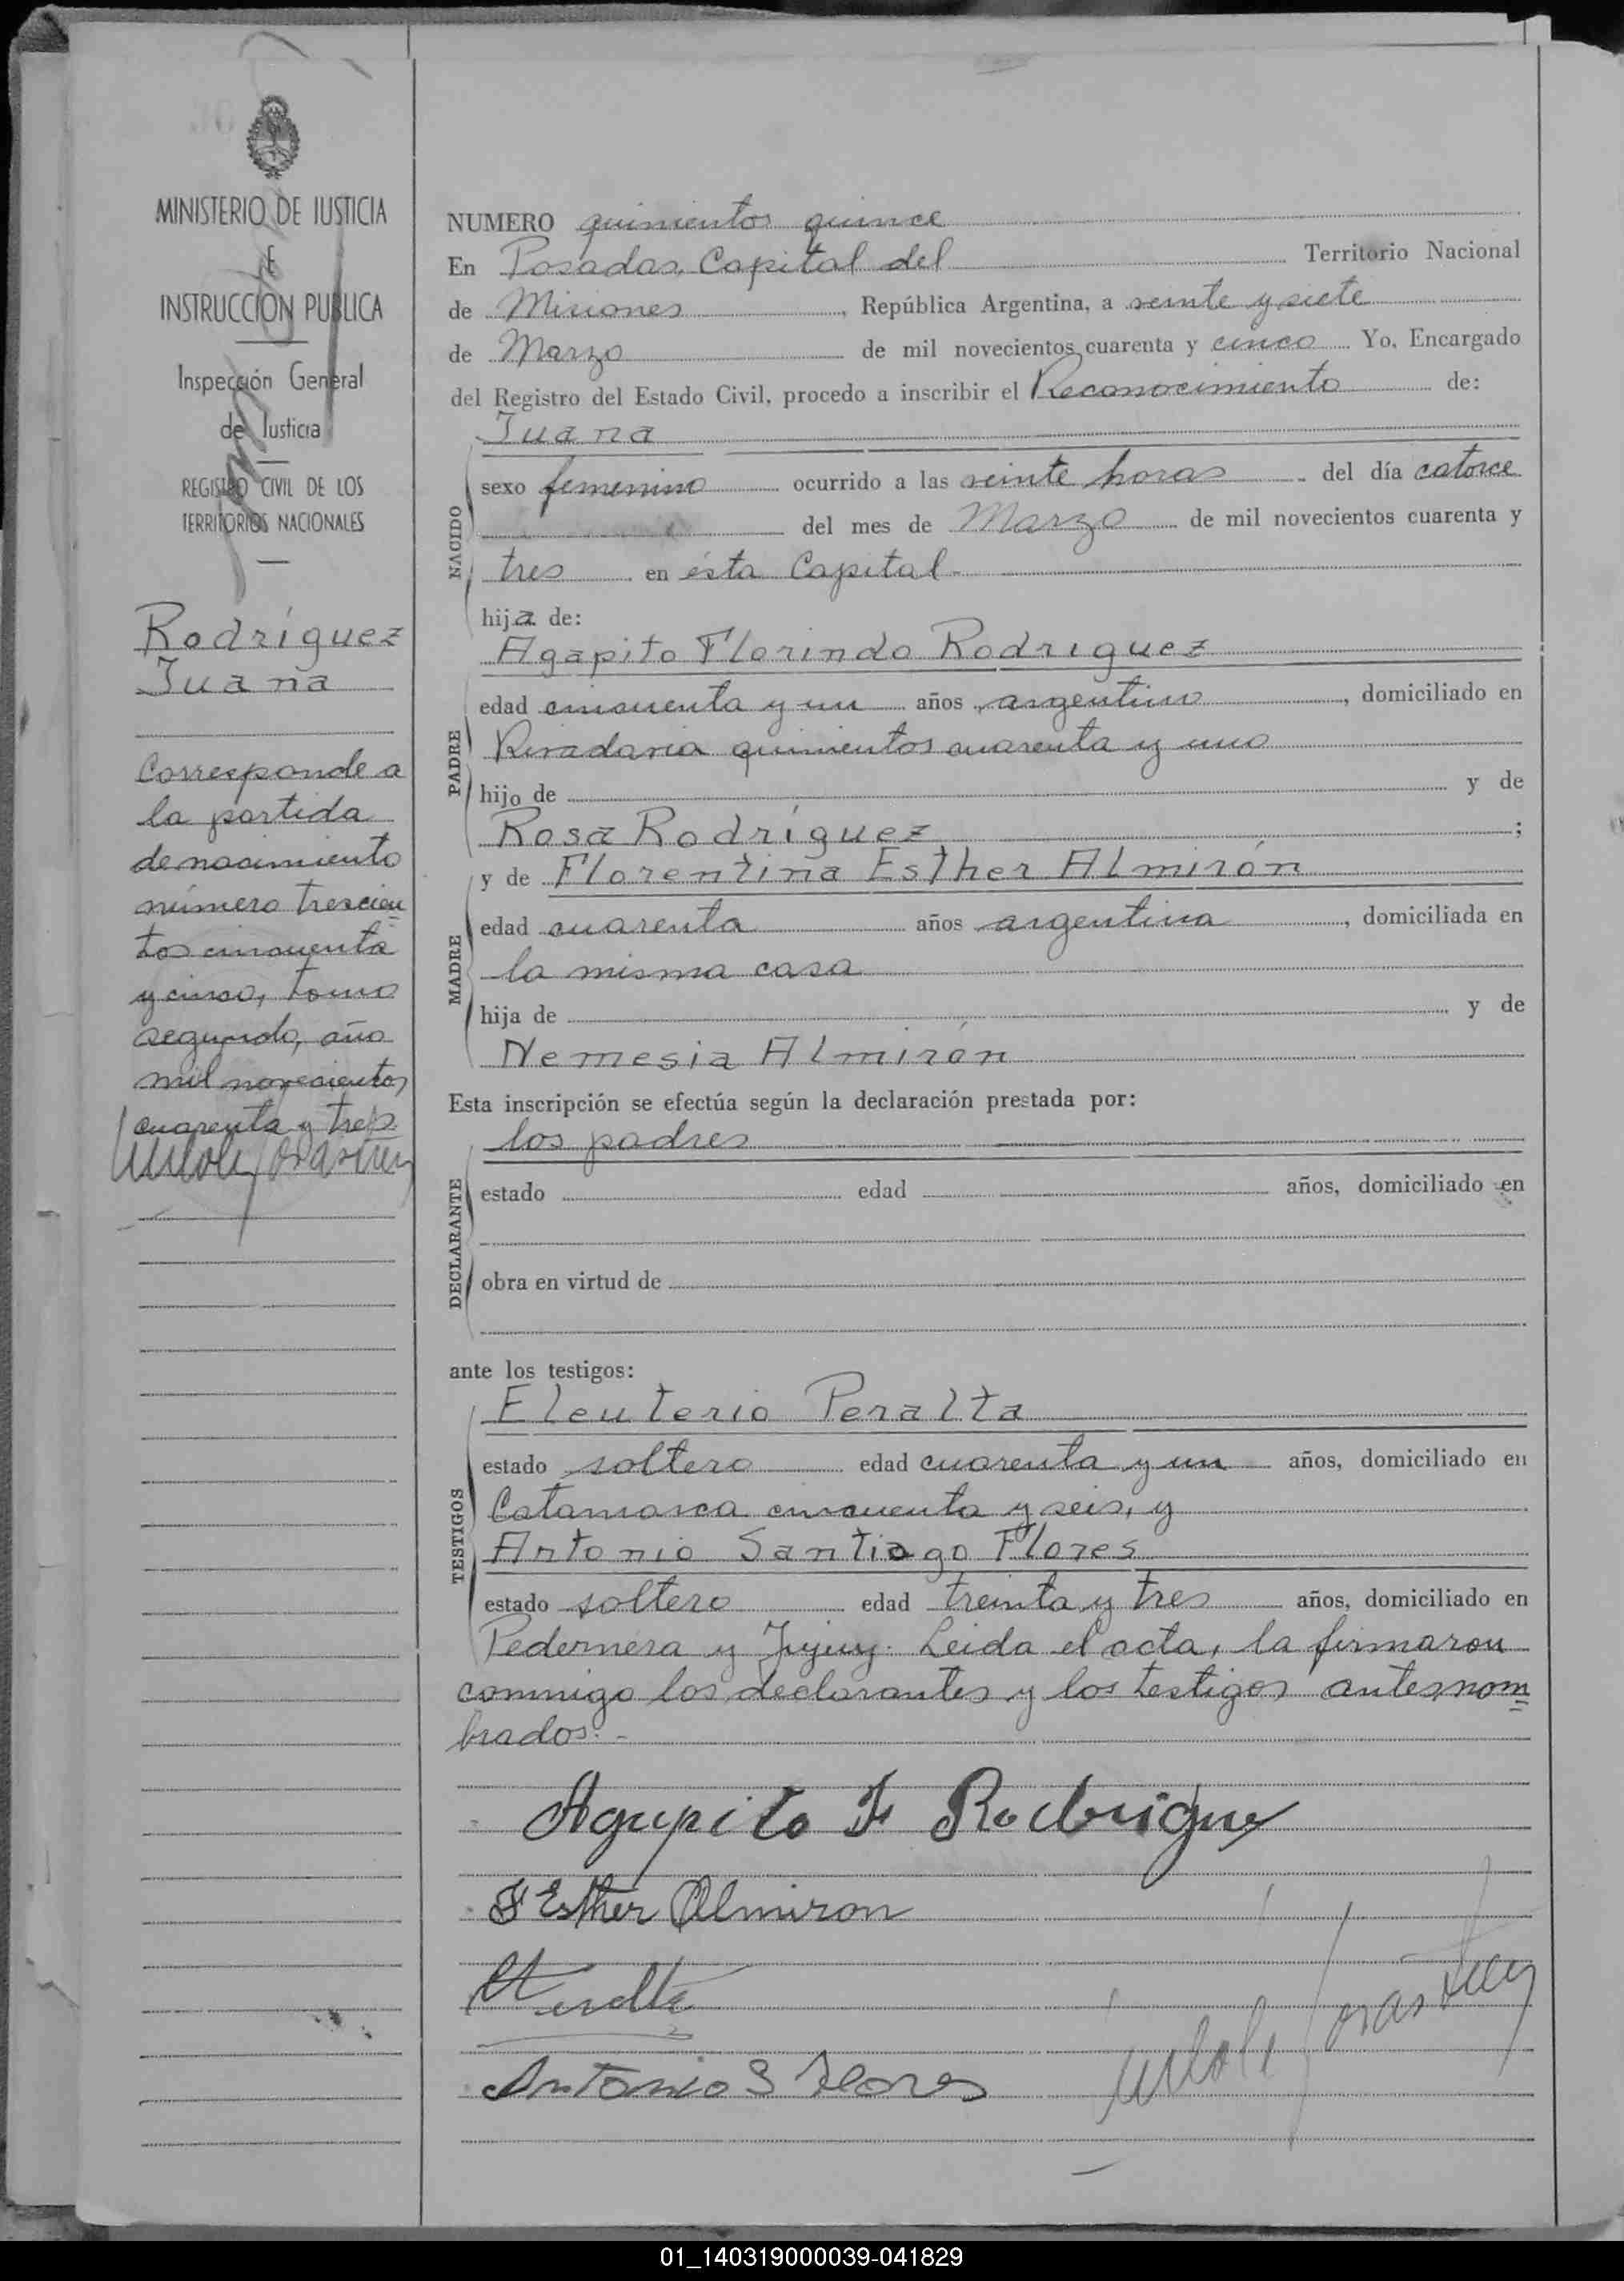 MINISTERIO DE JUSTICIA
E
INSTRUCCIÓN PUBLICA
Inspección General
de Justicia
REGISTRO CIVIL DE LOS
TERRITORIOS NACIONALES
Rodríguez
Juana
Corresponde a
la partida
de nacimiento
número trescien
tos cincuenta
y cinco, tomo
segundo, año
mil novecientos
cuarenta y tres
NUMERO quinientos quince
En Posadas, Capital del Territorio Nacional
de Misiones, República Argentina, a veinte y siete
de Marzo de mil novecientos cuarenta y cinco Yo, Encargado
del Registro del Estado Civil, procedo a inscribir el Reconocimiento de:
NACIDO
Juana
sexo femenino ocurrido a las veinte horas del día catorce
del mes de Marzo de mil novecientos cuarenta y
tres en ésta Capital.-
hija de:
PADRE
Agapito Florindo Rodriguez
edad cincuenta y un años, argentino, domiciliado en
Rivadavia quinientos cuarenta y uno
hijo de y de
Rosa Rodríguez;
MADRE
y de Florentina Esther Almirón
edad cuarenta años argentina, domiciliada en
la misma casa
hija de y de
Nemesia Almirón
Esta inscripción se efectúa según la declaración prestada por:
DECLARANTE
los padres
estado edad años, domiciliado en
obra en virtud de
ante los testigos:
TESTIGOS
Eleuterio Peralta
estado soltero edad cuarenta y un años, domiciliado en
Catamarca cincuenta y seis, y
Antonio Santiago Flores
estado soltero edad treinta y tres años, domiciliado en
Pedernera y Jujuy. Leida el acta, la firmaron
conmigo los declarantes y los testigos antes nom
brados.-
Agapito F Rodriguez
F Esther Almiron
Antonio S Flores
01_140319000039-041829